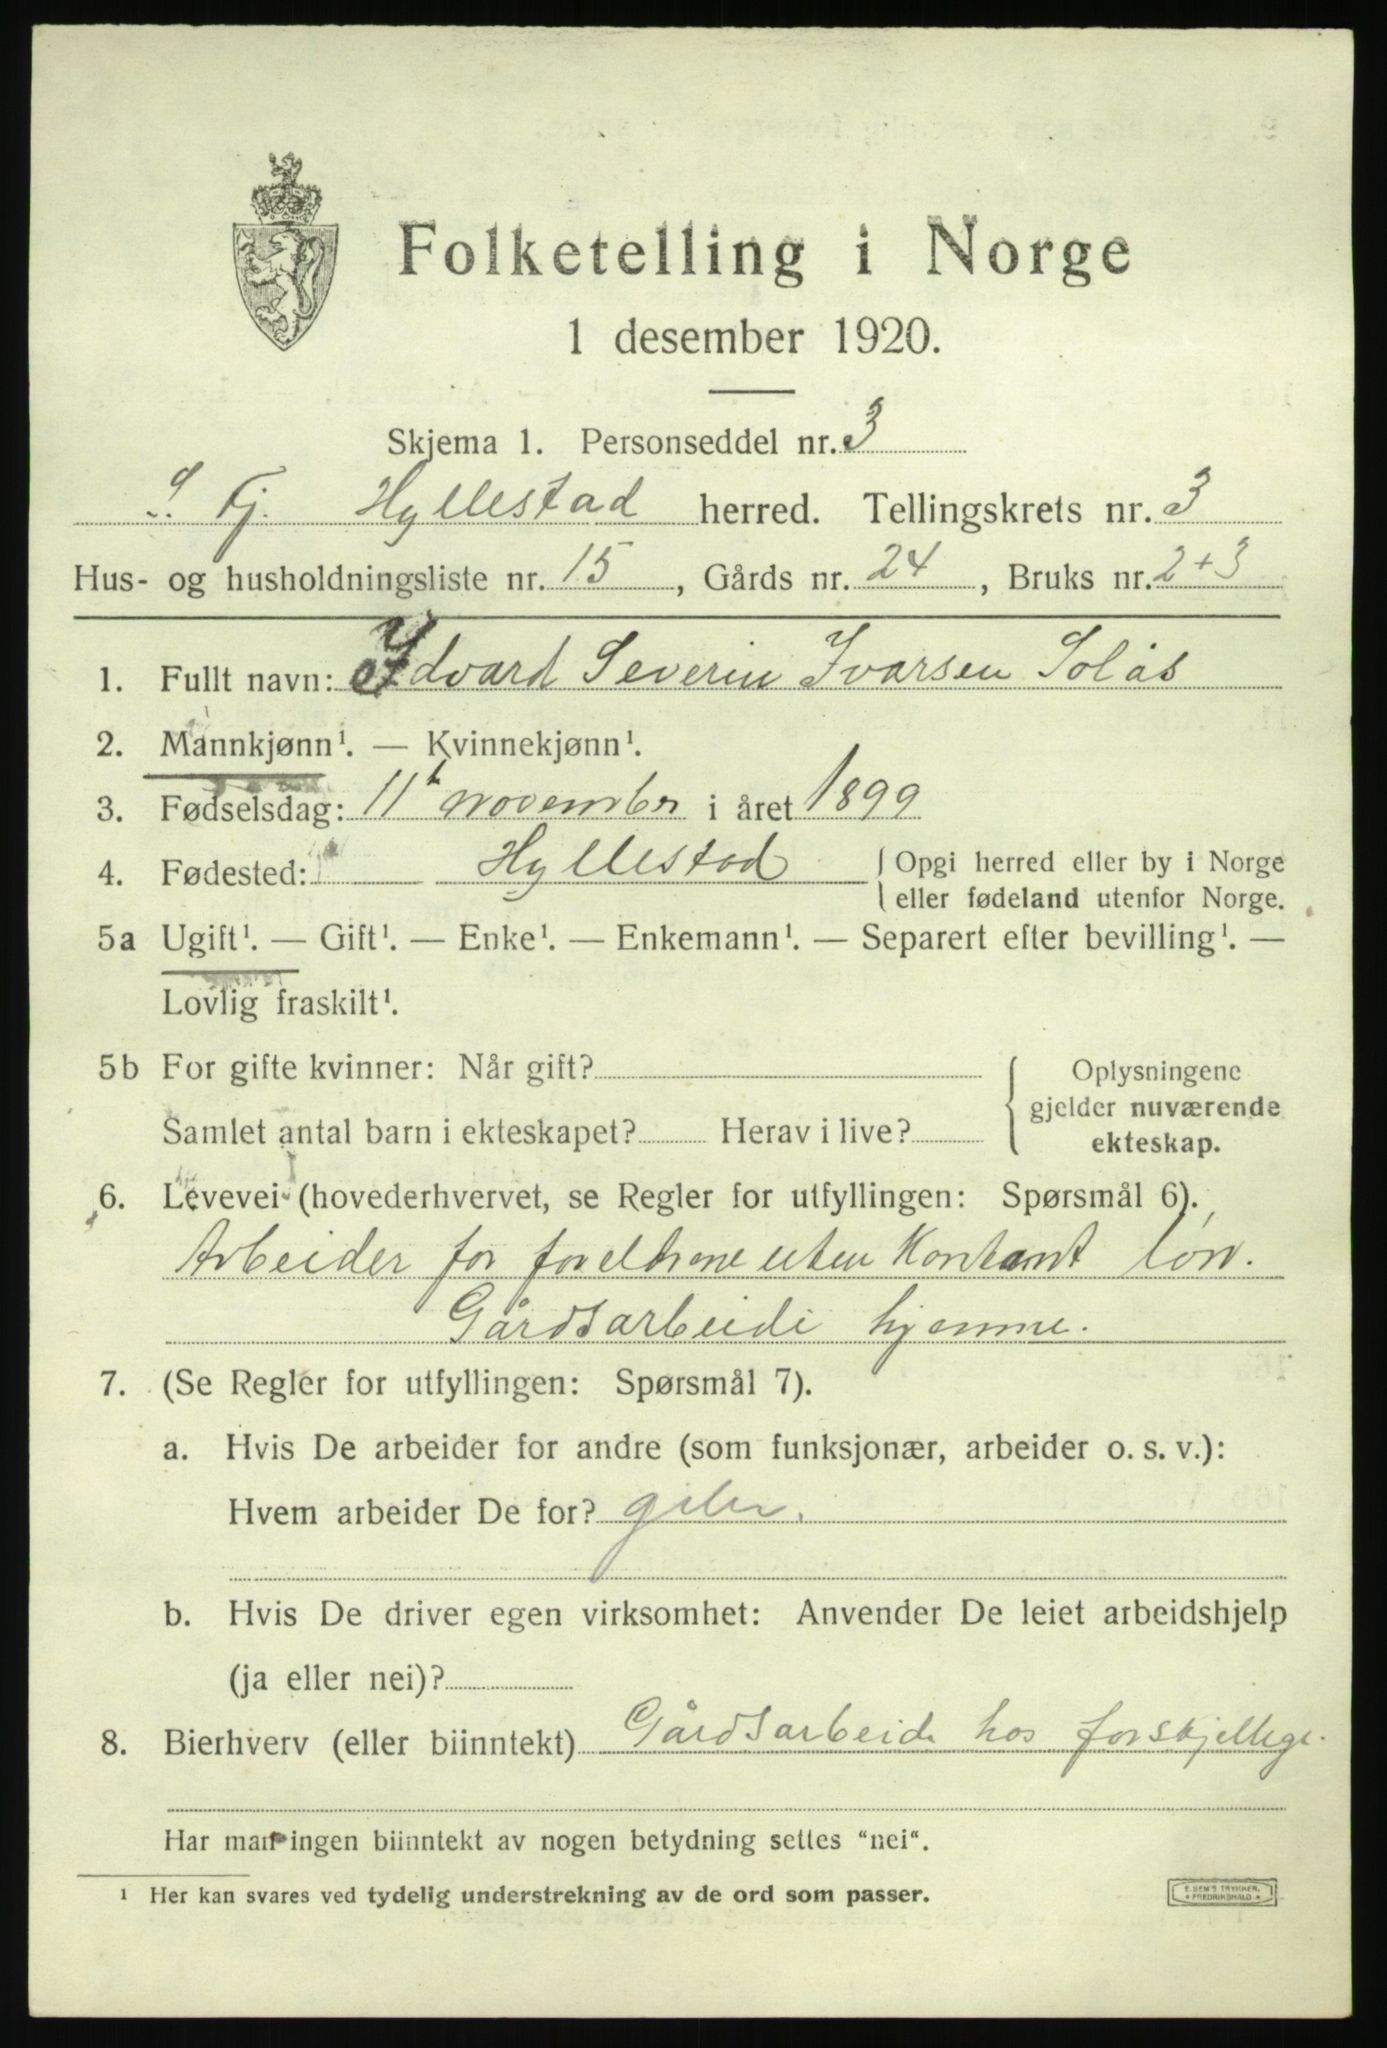 Folketelling i Norge
1 desember 1920.
Skjema 1. Personseddel nr. 3
S. Fj. Hyllestad herred. Tellingskrets nr. 3
Hus- og husholdningsliste nr. 15, Gårds nr. 24, Bruks nr. 2+3
1. Fullt navn: Edvard Severin Ivarsen Solås
2. Mannkjønn¹. — Kvinnekjønn¹.
3. Fødselsdag: 11t november i året 1899
4. Fødested: Hyllestad { Opgi herred eller by i Norge
eller fødeland utenfor Norge.
5a Ugift¹. — Gift¹. — Enke¹. — Enkemann¹. — Separert efter bevilling¹. —
Lovlig fraskilt¹.
5b For gifte kvinner: Når gift? { Oplysningene
gjelder nuværende
Samlet antal barn i ekteskapet? Herav i live?
ekteskap.
6. Levevei (hovederhvervet, se Regler for utfyllingen: Spørsmål 6).
Arbeider for foreldrene uten Kontant lön.
Gårdsarbeide hjemme.
7. (Se Regler for utfyllingen: Spørsmål 7).
a. Hvis De arbeider for andre (som funksjonær, arbeider o. s. v.):
Hvem arbeider De for?
b. Hvis De driver egen virksomhet: Anvender De leiet arbeidshjelp
(ja eller nei)?
8. Bierhverv (eller biinntekt) Gårdsarbeide hos forskjellige.
Har man ingen biinntekt av nogen betydning settes "nei".
¹ Her kan svares ved tydelig understrekning av de ord som passer.
E. SEM'S TRYKKER.
FREDRIKSHALD